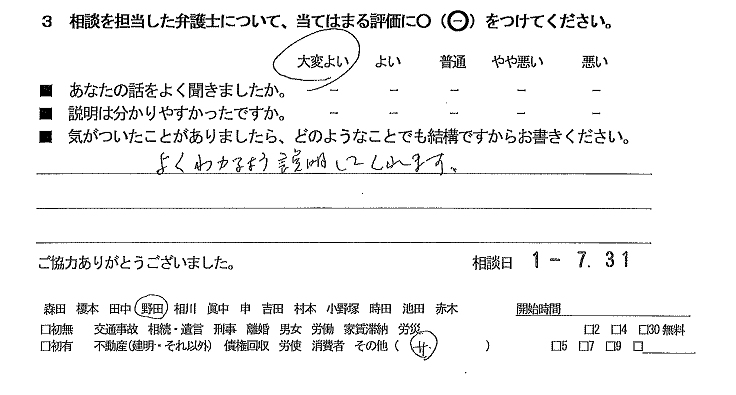 3 相談を担当した弁護士について、当てはまる評価に〇（㊀）をつけてください。
大変よい よい 普通 やや悪い 悪い
■ あなたの話をよく聞きましたか。 － － － － －
■ 説明は分かりやすかったですか。 － － － － －
■ 気がついたことがありましたら、どのようなことでも結構ですからお書きください。
よくわかるよう説明してくれます。
ご協力ありがとうございました。 相談日 1－7.31
森田 榎本 田中 野田 相川 眞中 申 吉田 村本 小野塚 時田 池田 赤木 開始時間
□初無 交通事故 相続・遺言 刑事 離婚 男女 労働 家賃滞納 労災 □2 □4 □30無料
□初有 不動産(建明・それ以外) 債権回収 労使 消費者 その他（ ） □5 □7 □9 □